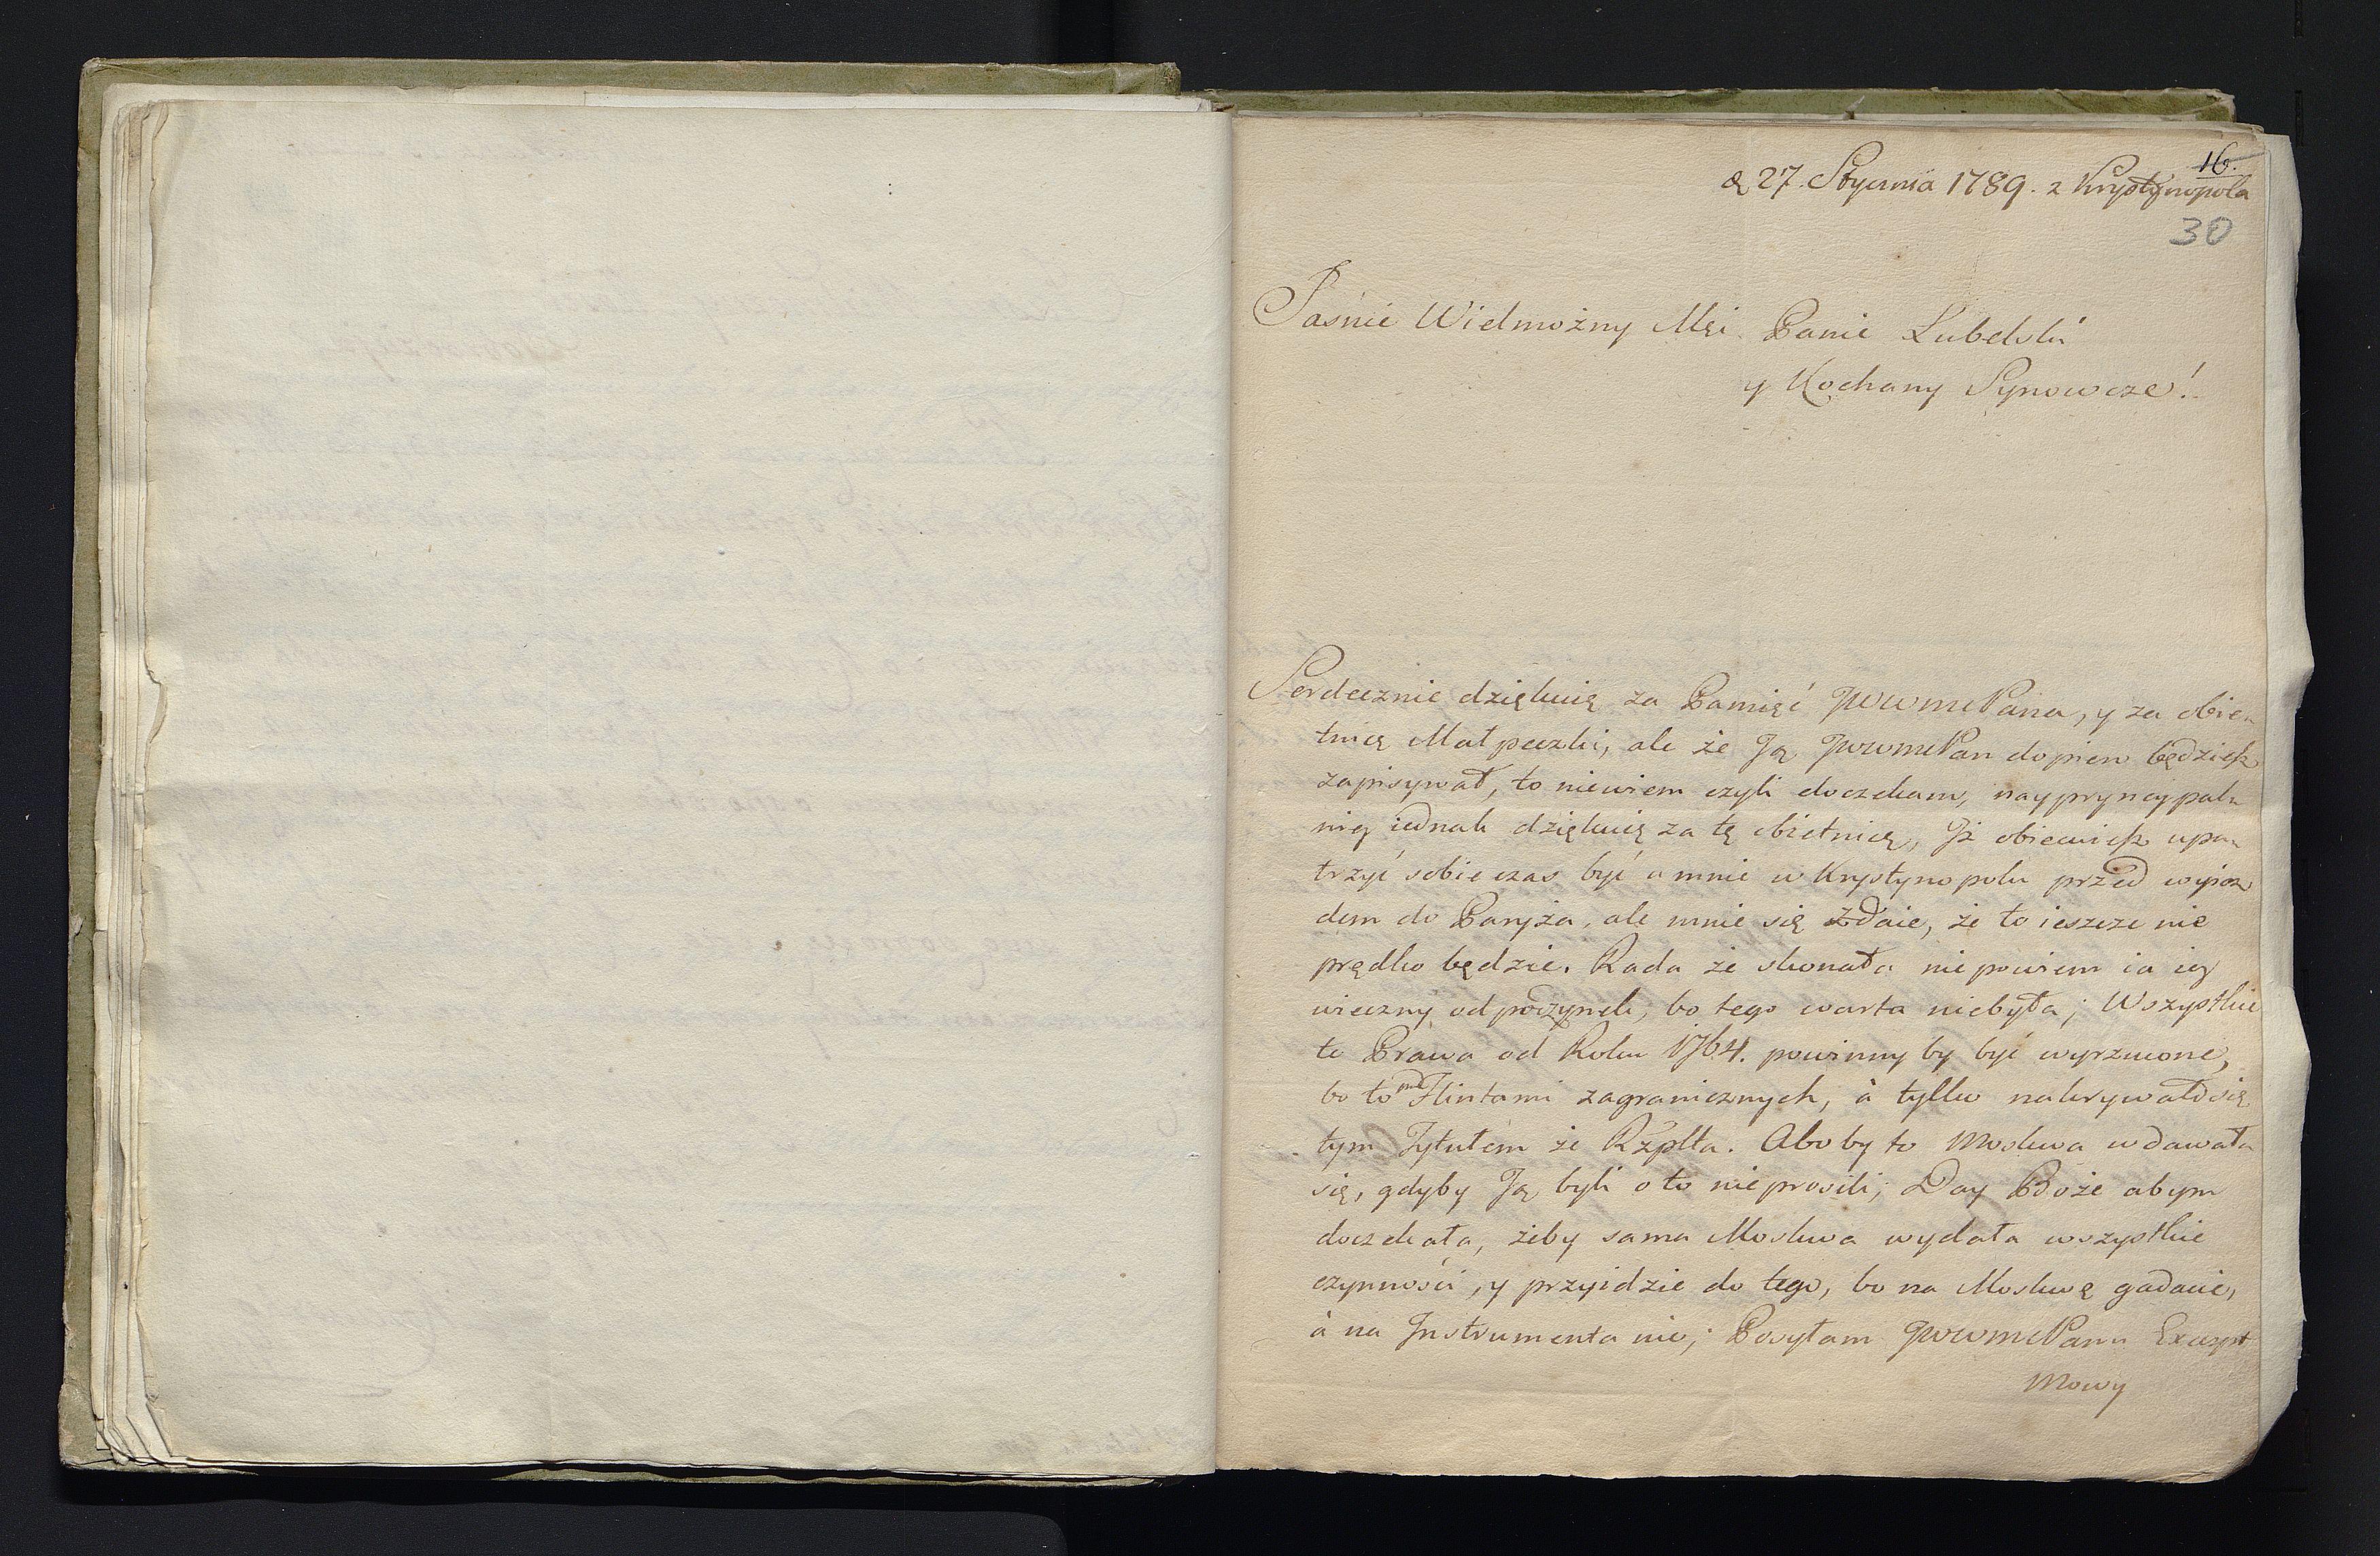 16.
d 27. Stycznia 1789. z Krystynopola
30
Jaśnie Wielmożny Mći Panie Lubelski
y Kochany Synowcze!
Serdecznie dziękuię za Pamięć JWWmć Pana, y za obie-
tnicę Małpeczki, ale że Ją JWWmć Pan dopiero będziesz
zapisywał, to niewiem czyli doczekam, naypryncypal-
niey iednak dziękuię za tę obietnicę, Jż obiecuiesz upa-
trzyć sobie czas być u mnie w Krystynopolu przed wyiaz
dem do Paryża, ale mnie się zdaie, że to ieszcze nie
prędko będzie. Rada że skonała nie powiem ia iey
wieczny odpoczynek, bo tego warta niebyła; Wszystkie
te Prawa od Roku 1764. powinny by być wyrzucone,
bo to pod Flintami zagranicznych, à tylko nakrywałosię
tym Tytułem że Rzplta. Abo by to Moskwa wdawała
się, gdyby Ją byli oto nieprosili; Day Boże abym
doczekała, żeby sama Moskwa wydała wszystkie
czynności, y przyidzie do tego, bo na Moskwę gadacie,
à na Instrumenta nie; Posyłam JWWmć Panu Excerpt
Mowy